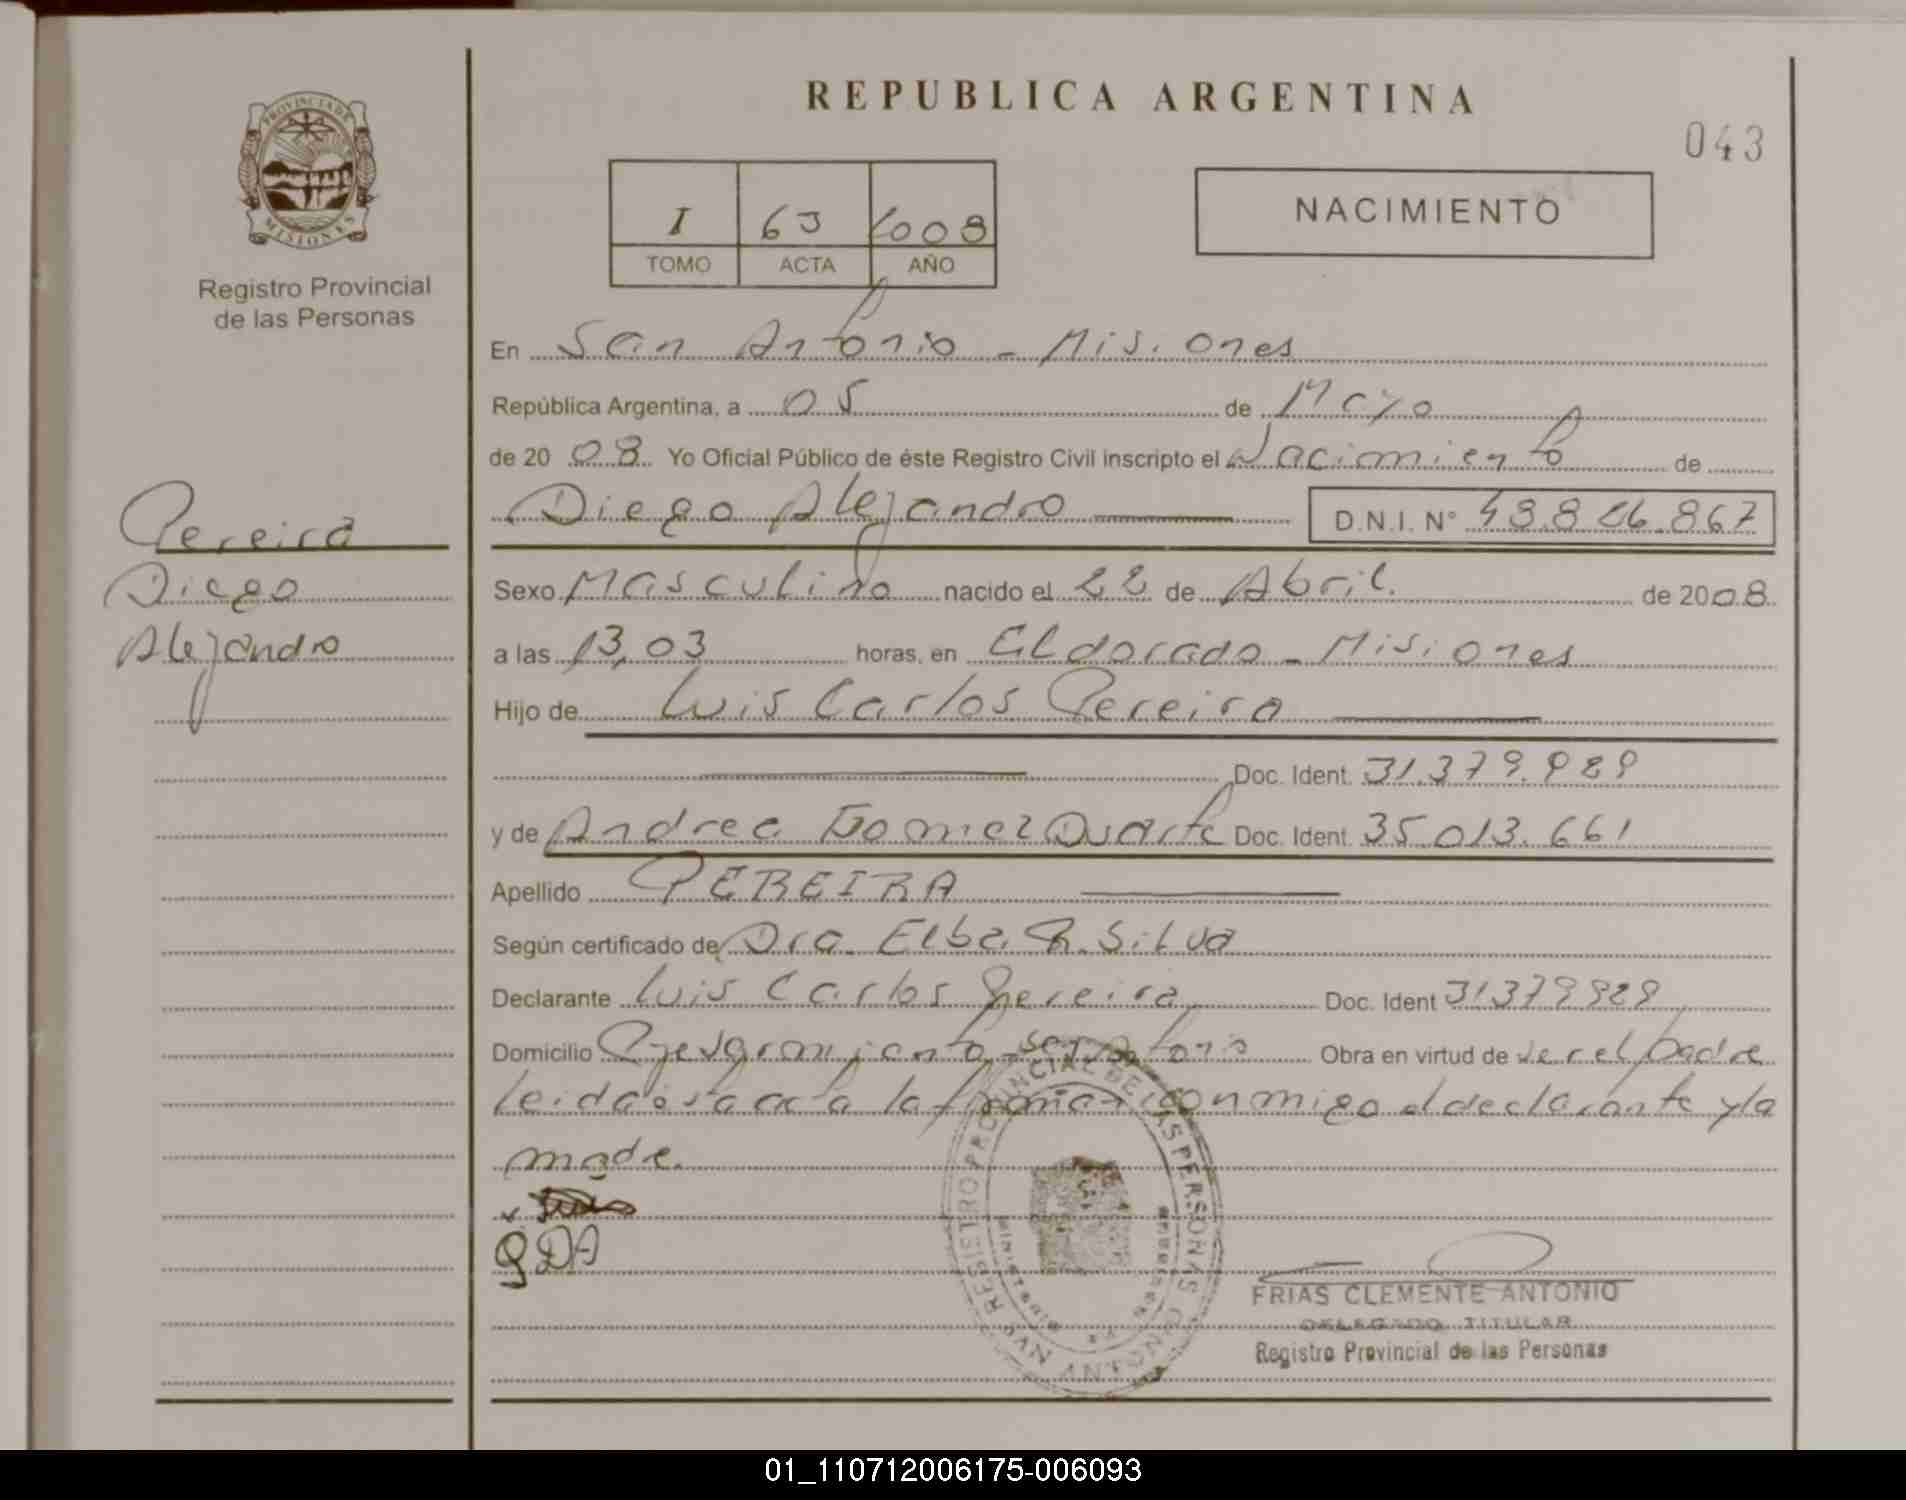 REPUBLICA ARGENTINA
043
PROVINCIA DE
MISIONES
Registro Provincial
de las Personas
I 63 2008
TOMO ACTA AÑO
NACIMIENTO
En San Antonio - Misiones
República Argentina, a 05 de Mayo
de 20 08 Yo Oficial Público de éste Registro Civil inscripto el Nacimiento de
Pereira
Diego Alejandro D.N.I. Nº
Diego
Sexo Masculino nacido el 22 de Abril de 2008
Alejandro
a las 13,03 horas, en Eldorado - Misiones
Hijo de Luis Carlos Pereira
Doc. Ident. 31.379.929
y de Andrea Gomez Duarte Doc. Ident. 35.013.661
Apellido PEREIRA
Según certificado de Dra. Elba R. Silva
Declarante Luis Carlos Pereira Doc. Ident 31379929
Domicilio San Antonio Obra en virtud de ser el padre
leida esta acta la firman conmigo el declarante y la
madre.
GDA
REGISTRO PROVINCIAL DE LAS PERSONAS
SAN ANTONIO
FRIAS CLEMENTE ANTONIO
DELEGADO TITULAR
Registro Provincial de las Personas
01_110712006175-006093